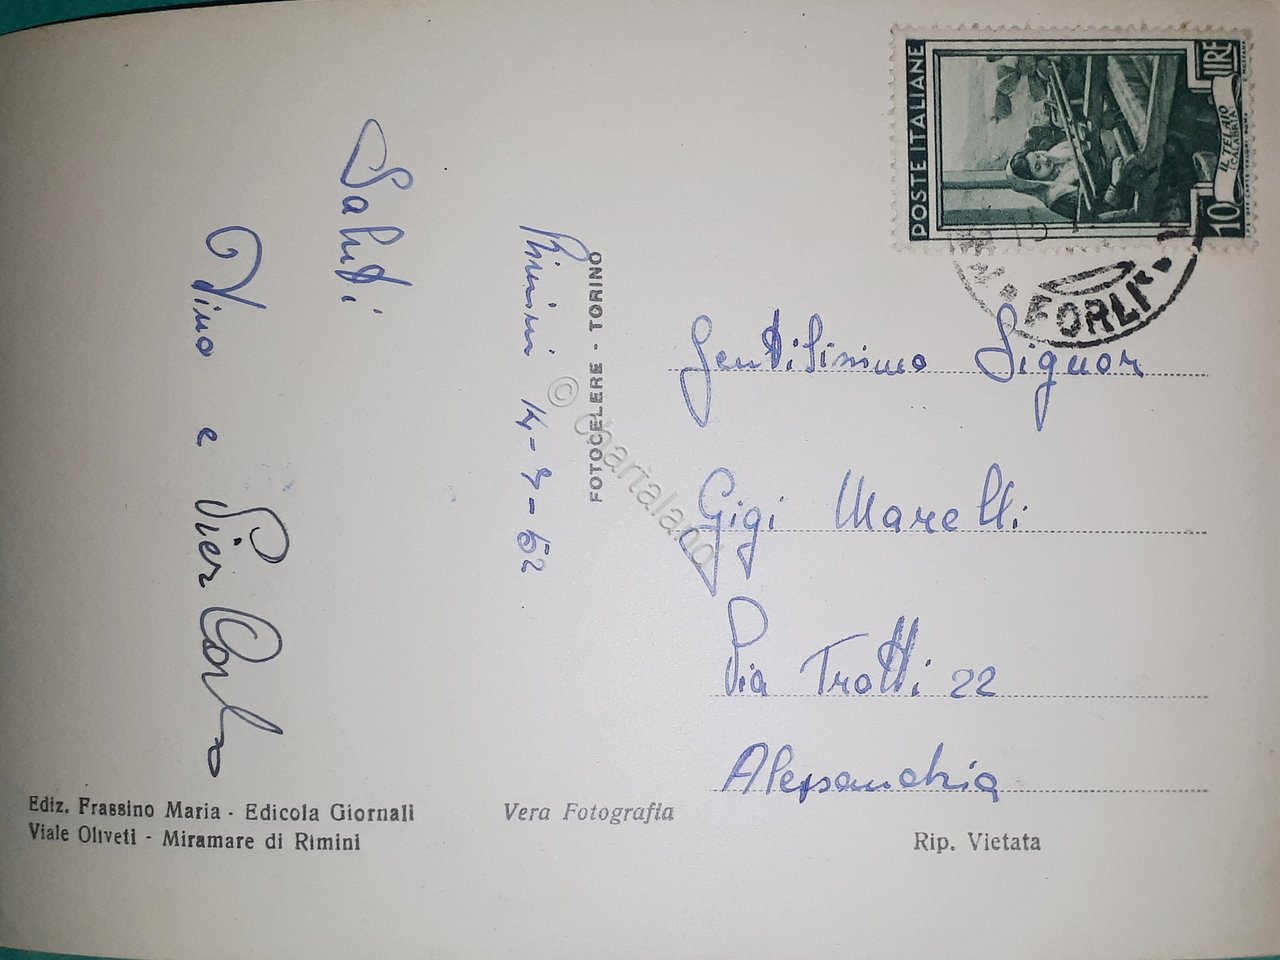 Rimini 14-7-52
Saluti
Pier Carlo
Gentilissimo Signor
Gigi Marelli
Via Trotti 22
Alessandria
POSTE ITALIANE
LIRE
10
IL TELAIO
CALABRIA
FORLI
FOTOCELERE - TORINO
© chartaland
Ediz. Frassino Maria - Edicola Giornali
Viale Oliveti - Miramare di Rimini
Vera Fotografia
Rip. Vietata